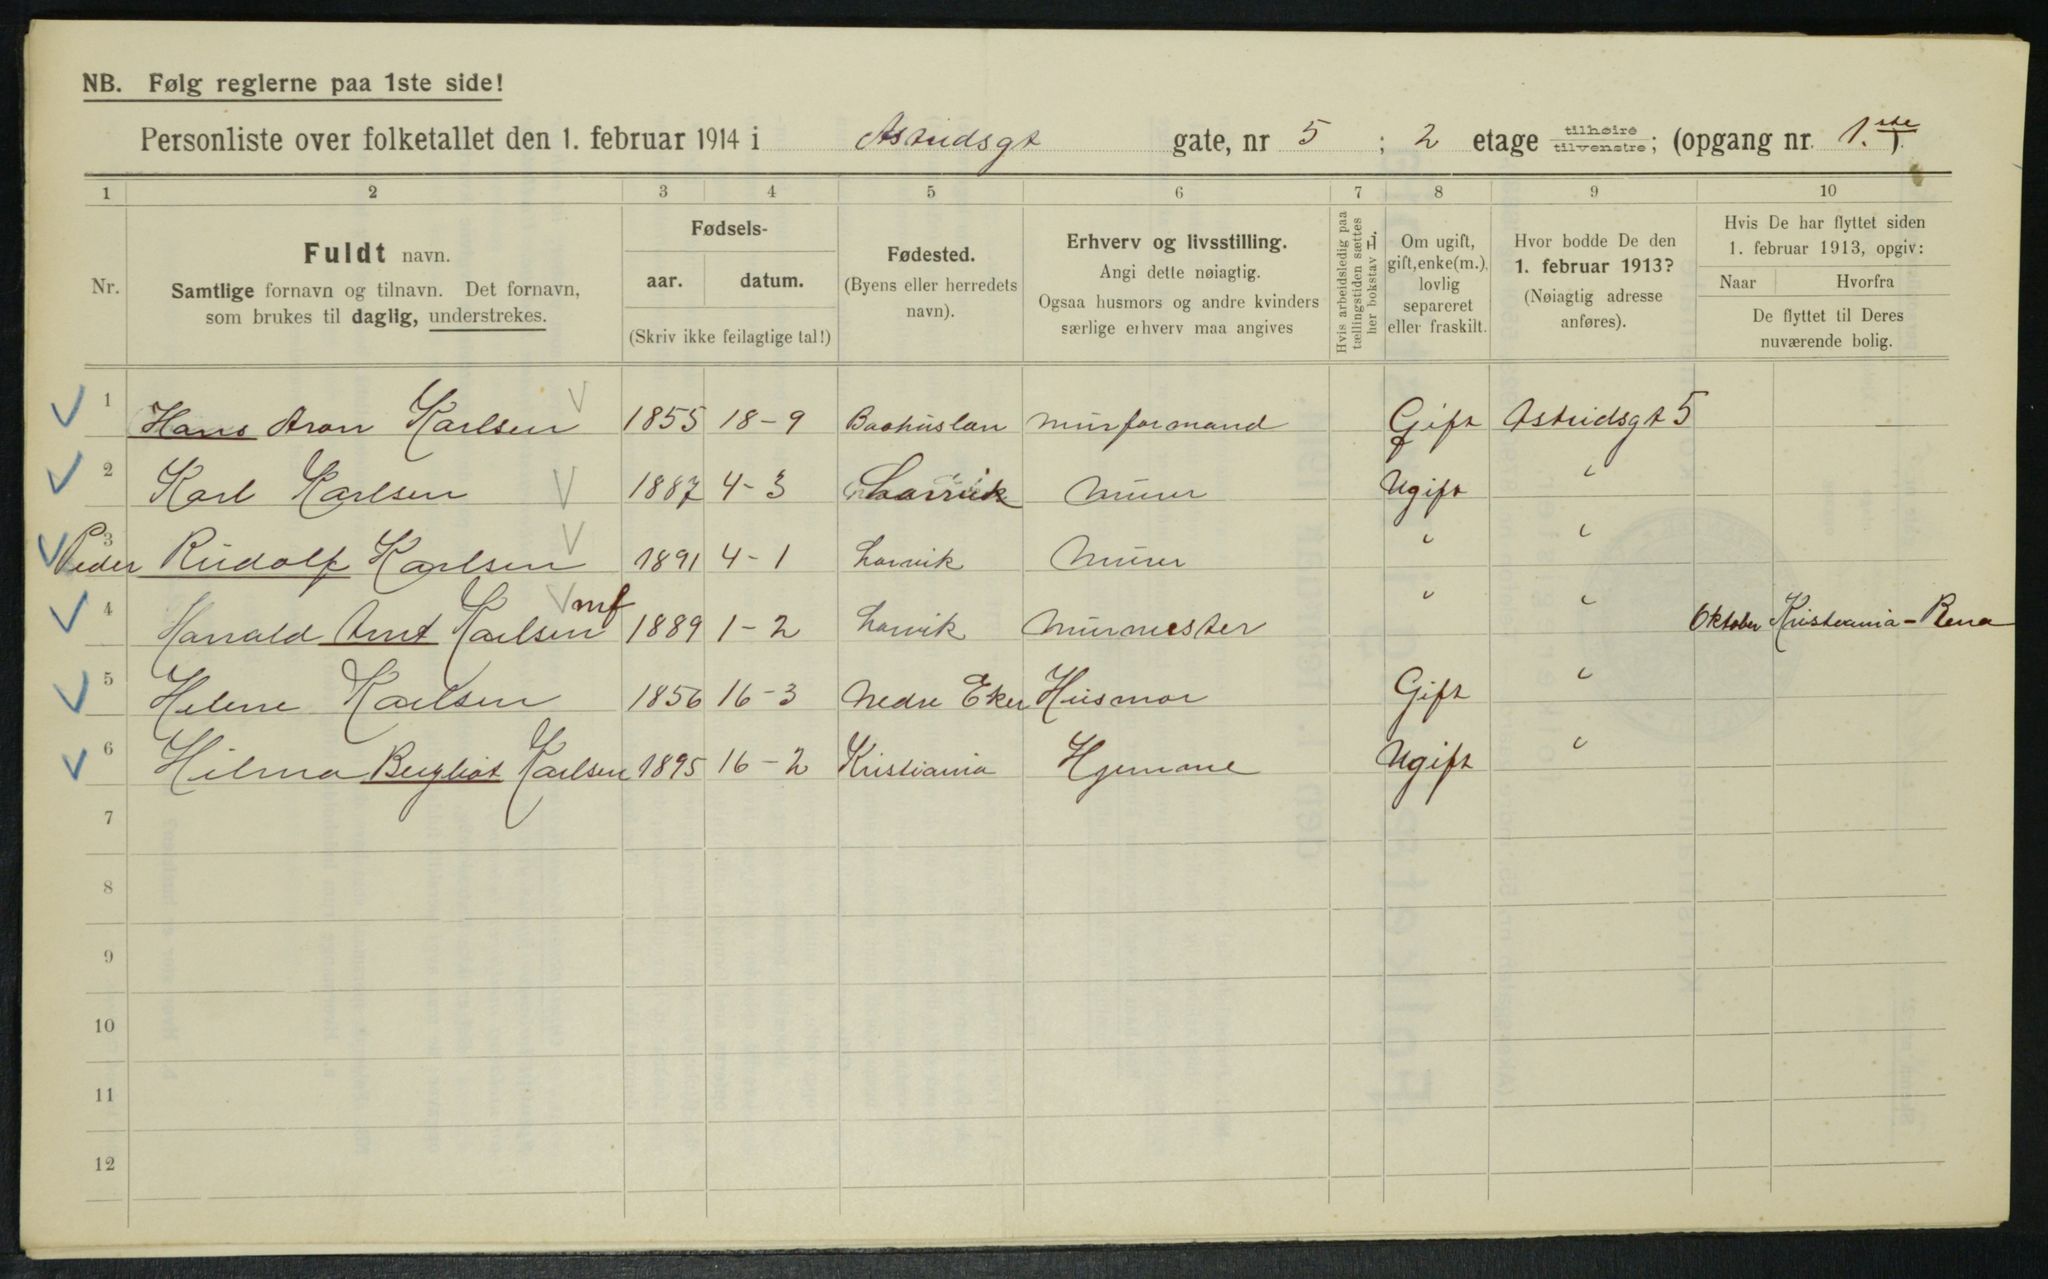 NB. Følg reglerne paa 1ste side!
Personliste over folketallet den 1. februar 1914 i Astridsgt gate, nr 5 ; 2 etage tilhøire tilvenstre; (opgang nr. 1.ste).
1 2 3 4 5 6 7 8 9 10
Nr.
Fuldt navn.
Samtlige fornavn og tilnavn. Det fornavn,
som brukes til daglig, understrekes.
Fødsels-
aar. datum.
(Skriv ikke feilagtige tal!)
Fødested.
(Byens eller herredets
navn).
Erhverv og livsstilling.
Angi dette nøiagtig.
Ogsaa husmors og andre kvinders
særlige erhverv maa angives
Hvis arbeidsledig paa
tællingstiden sættes
her bokstav L.
Om ugift,
gift, enke(m.),
lovlig
separeret
eller fraskilt.
Hvor bodde De den
1. februar 1913?
(Nøiagtig adresse
anføres).
Hvis De har flyttet siden
1. februar 1913, opgiv:
Naar Hvorfra
De flyttet til Deres
nuværende bolig.
1 Hans Aron Karlsen 1855 18-9 Baahuslan Murformand Gift Astridsgt 5
2 Karl Karlsen 1887 4-3 Larvik Murer Ugift "
3 Peder Rudolf Karlsen 1891 4-1 Larvik Murer " "
4 Harrald Arnt Karlsen mf 1889 1-2 Larvik Murmester " " Oktober Kristiania - Rena
5 Helene Karlsen 1856 16-3 Nedre Eker Husmor Gift "
6 Hilma Bergliot Karlsen 1895 16-2 Kristiania Hjemme Ugift "
7
8
9
10
11
12